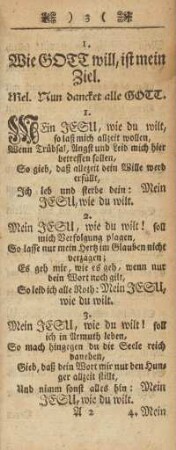 ) 3 (
1.
Wie GOTT will, ist mein
Ziel.
Mel. Nun dancket alle GOTT.
1.
MEin JESU, wie du wilt,
so lass mich allzeit wollen,
Wenn Trübsal, Angst und Leid mich hier
betreffen sollen,
So gieb, daß allezeit dein Wille werd
erfüllt,
Ich leb und sterbe dein: Mein
JESU, wie du wilt.
2.
Mein JESU, wie du wilt! soll
mich Verfolgung plagen,
So lasse nur mein Hertz im Glauben nicht
verzagen;
Es geh mir, wie es geh, wenn nur
dein Wort noch gilt,
So leid ich alle Noth: Mein JESU,
wie du wilt.
3.
Mein JESU, wie du wilt! soll
ich in Armuth leben,
So mach hingegen du die Seele reich
daneben,
Gieb, daß dein Wort mir nur den Hun-
ger allzeit stillt,
Und nimm sonst alles hin: Mein
JESU, wie du wilt.
A 2 4. Mein